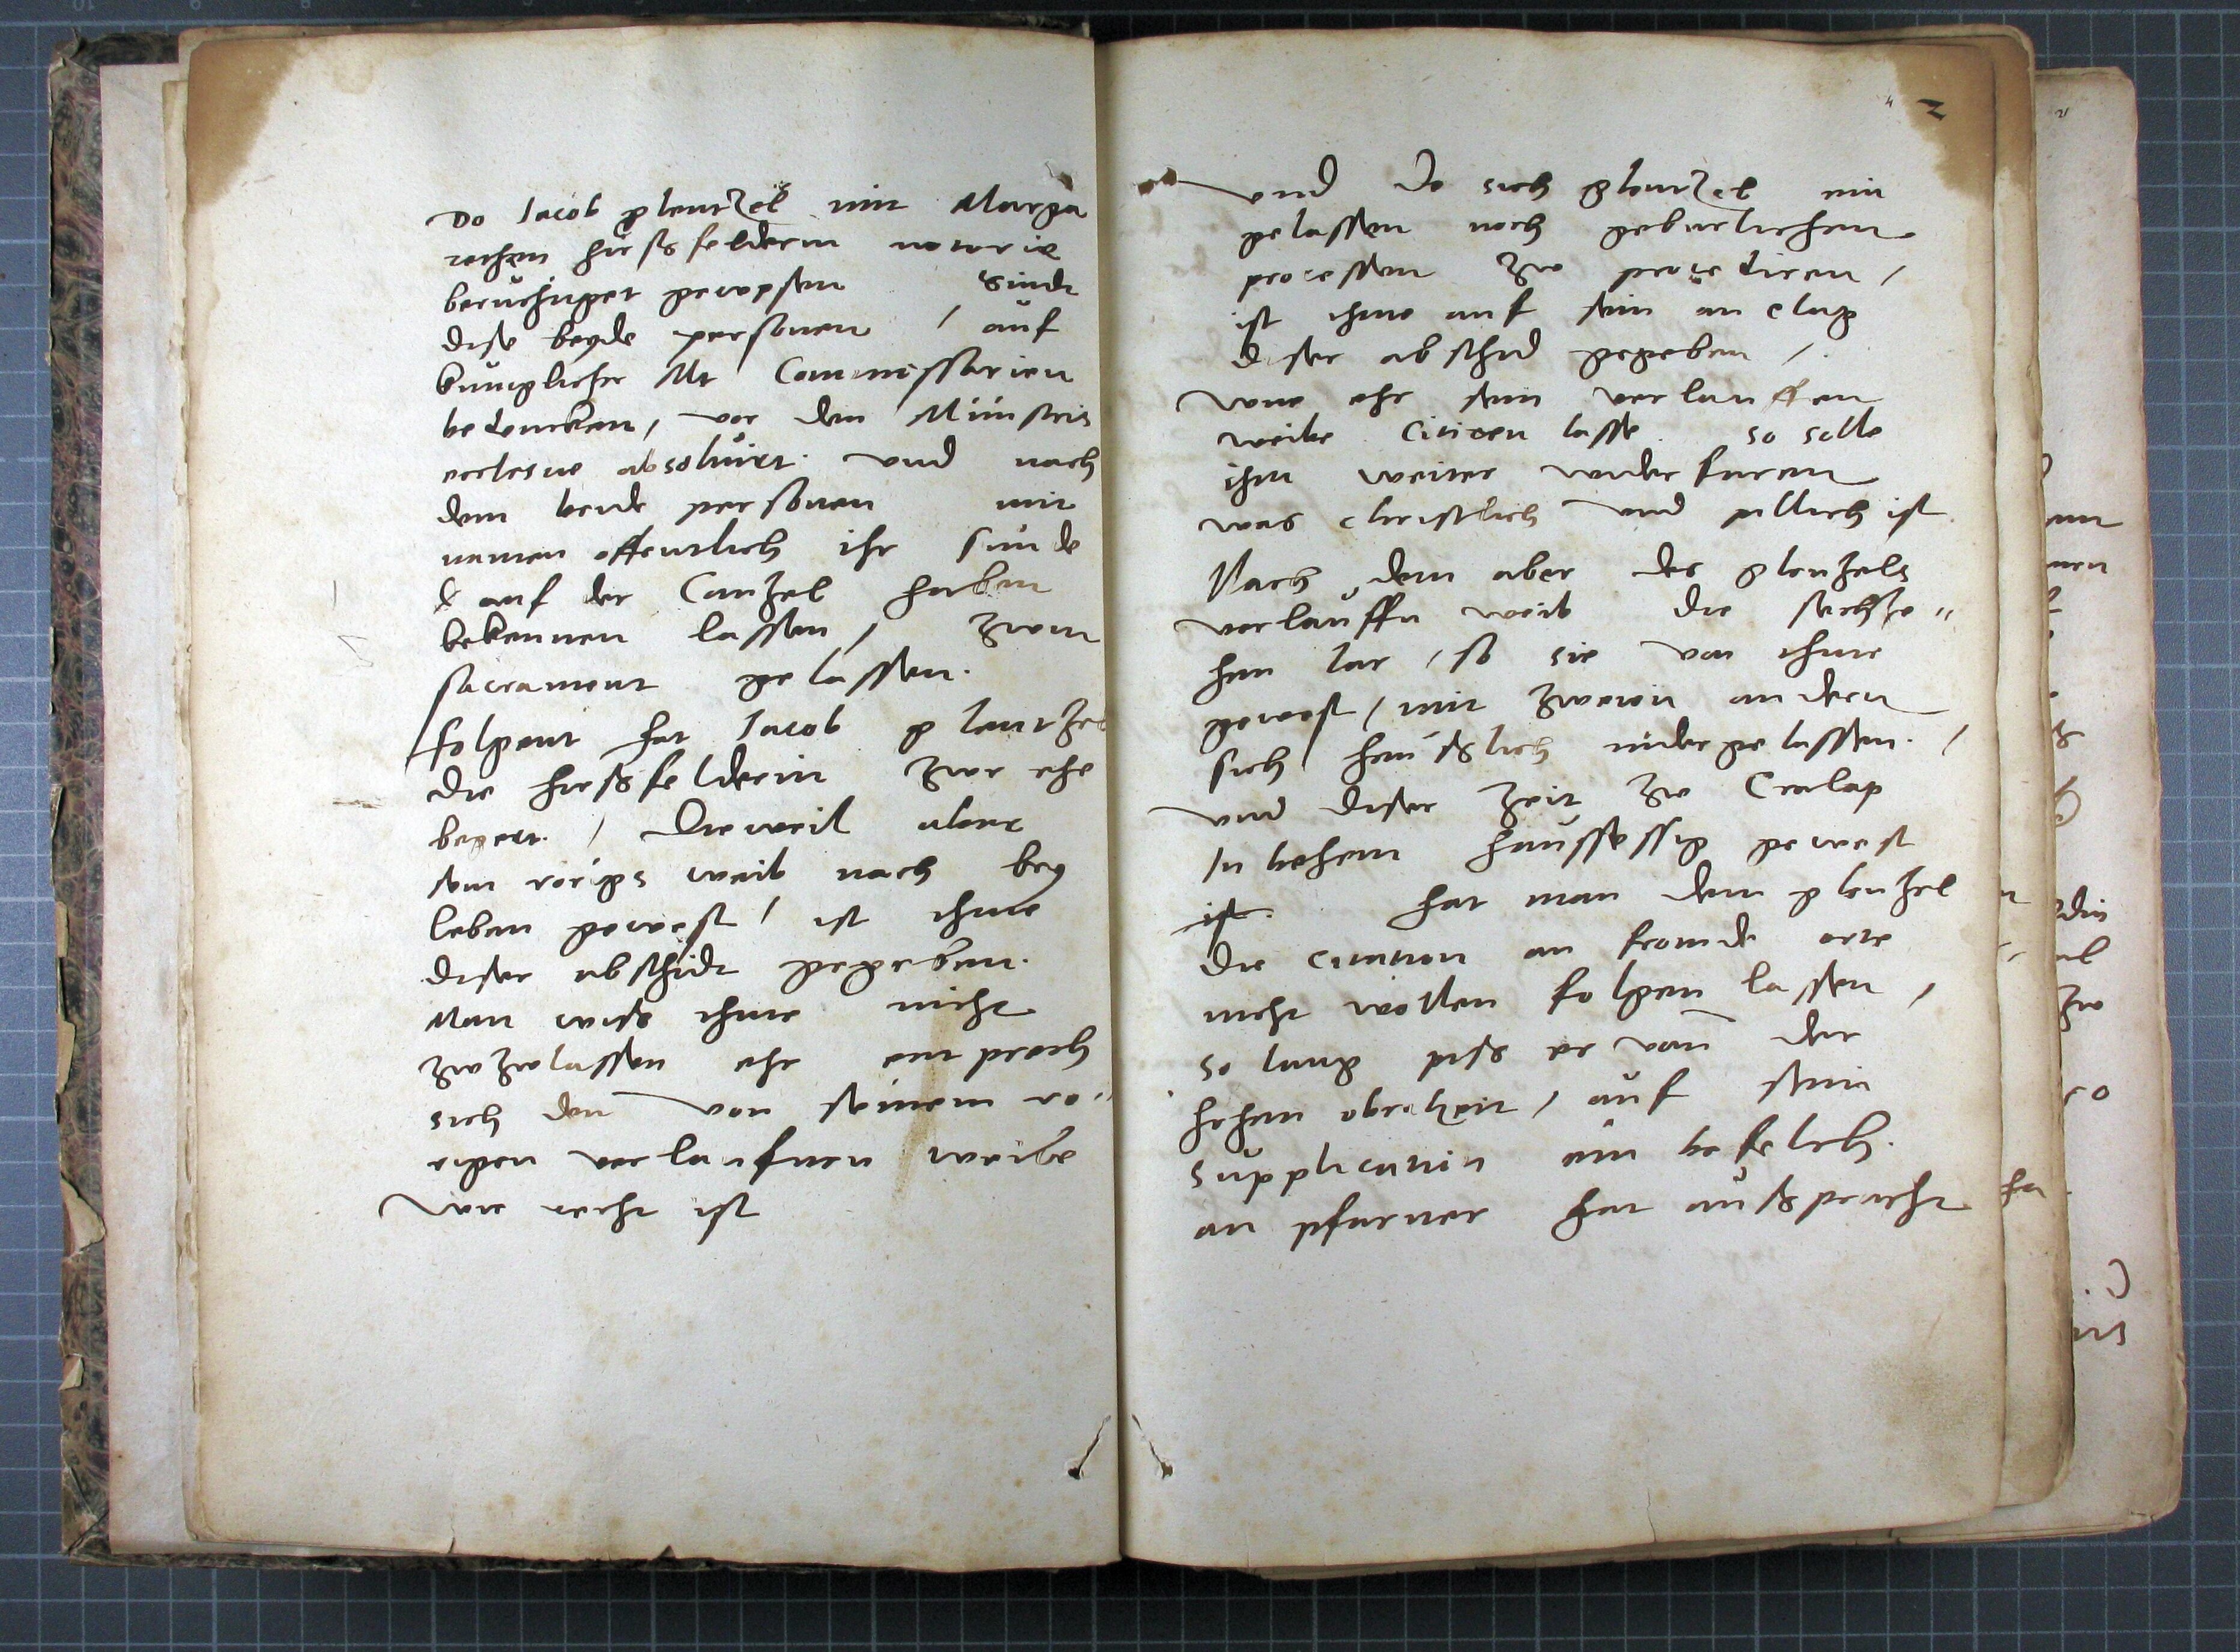 Do Jacob gleutzel mit Marga
rethen hirßfelderin notorie
beruchtiget gewesen sindt
dise beyde personen / auf
kunigliche Mt Commissarien
bedencken / vor den Ministris
ecclesiae absoluirt. und nach
dem beide personen mit
namen offentlich ihr sunde
auf der Cantzel haben
bekennen lassen / zwm
sacrament gelassen.
folgent hat Jacob gleutzel
die hirßfelderin zwr ehe
begert. / Dieweil aber
sein vorigs weib noch bey
leben gewest / ist ihme
diser abschidt gegeben.
Man wiß ihme nicht
zwzwlassen ehr entprech
sich den von seinem vo"
rigen verlaufnen weibe
wie recht ist
2
und do sich gleutzel ein
gelassen noch geburlichem
processen zw procediren /
ist ihme auf sein anclag
diser abschid gegeben /
wue ehr sein verlauffen
weibe citiren lasse. so solle
ihm weiter widerfaren
was christlich und pillich ist.
Nach dem aber des gleutzels
verlauffn weib die sechtze"
hen Jar / so sie von ihme
gewest / mit zweien andern
sich heußlich nidergelassen. /
und diser zeit zw Cralap
In behem haussessig gewest
ist. hat man dem gleutzel
die citation an frembde orte
nicht wollen folgen lassen /
so lang piß er von der
hohen oberkeit / auf sein
supplication ein befelch.
an pfarner hat außpracht